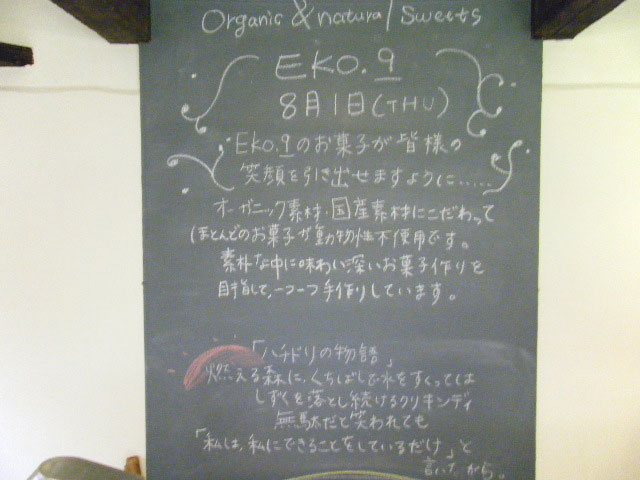 Organic & natural Sweets
EKO.9
8月1日(THU)
EKO.9のお菓子が皆様の
笑顔を引き出せますように……
オーガニック素材・国産素材にこだわって
ほとんどのお菓子が動物性不使用です。
素朴な中に味わい深いお菓子作りを
目指して、一つ一つ手作りしています。
「ハチドリの物語」
燃える森に、くちばしで水をすくっては
しずくを落とし続けるクリキンディ
無駄だと笑われても
「私は、私にできることをしているだけ」と
言いながら。